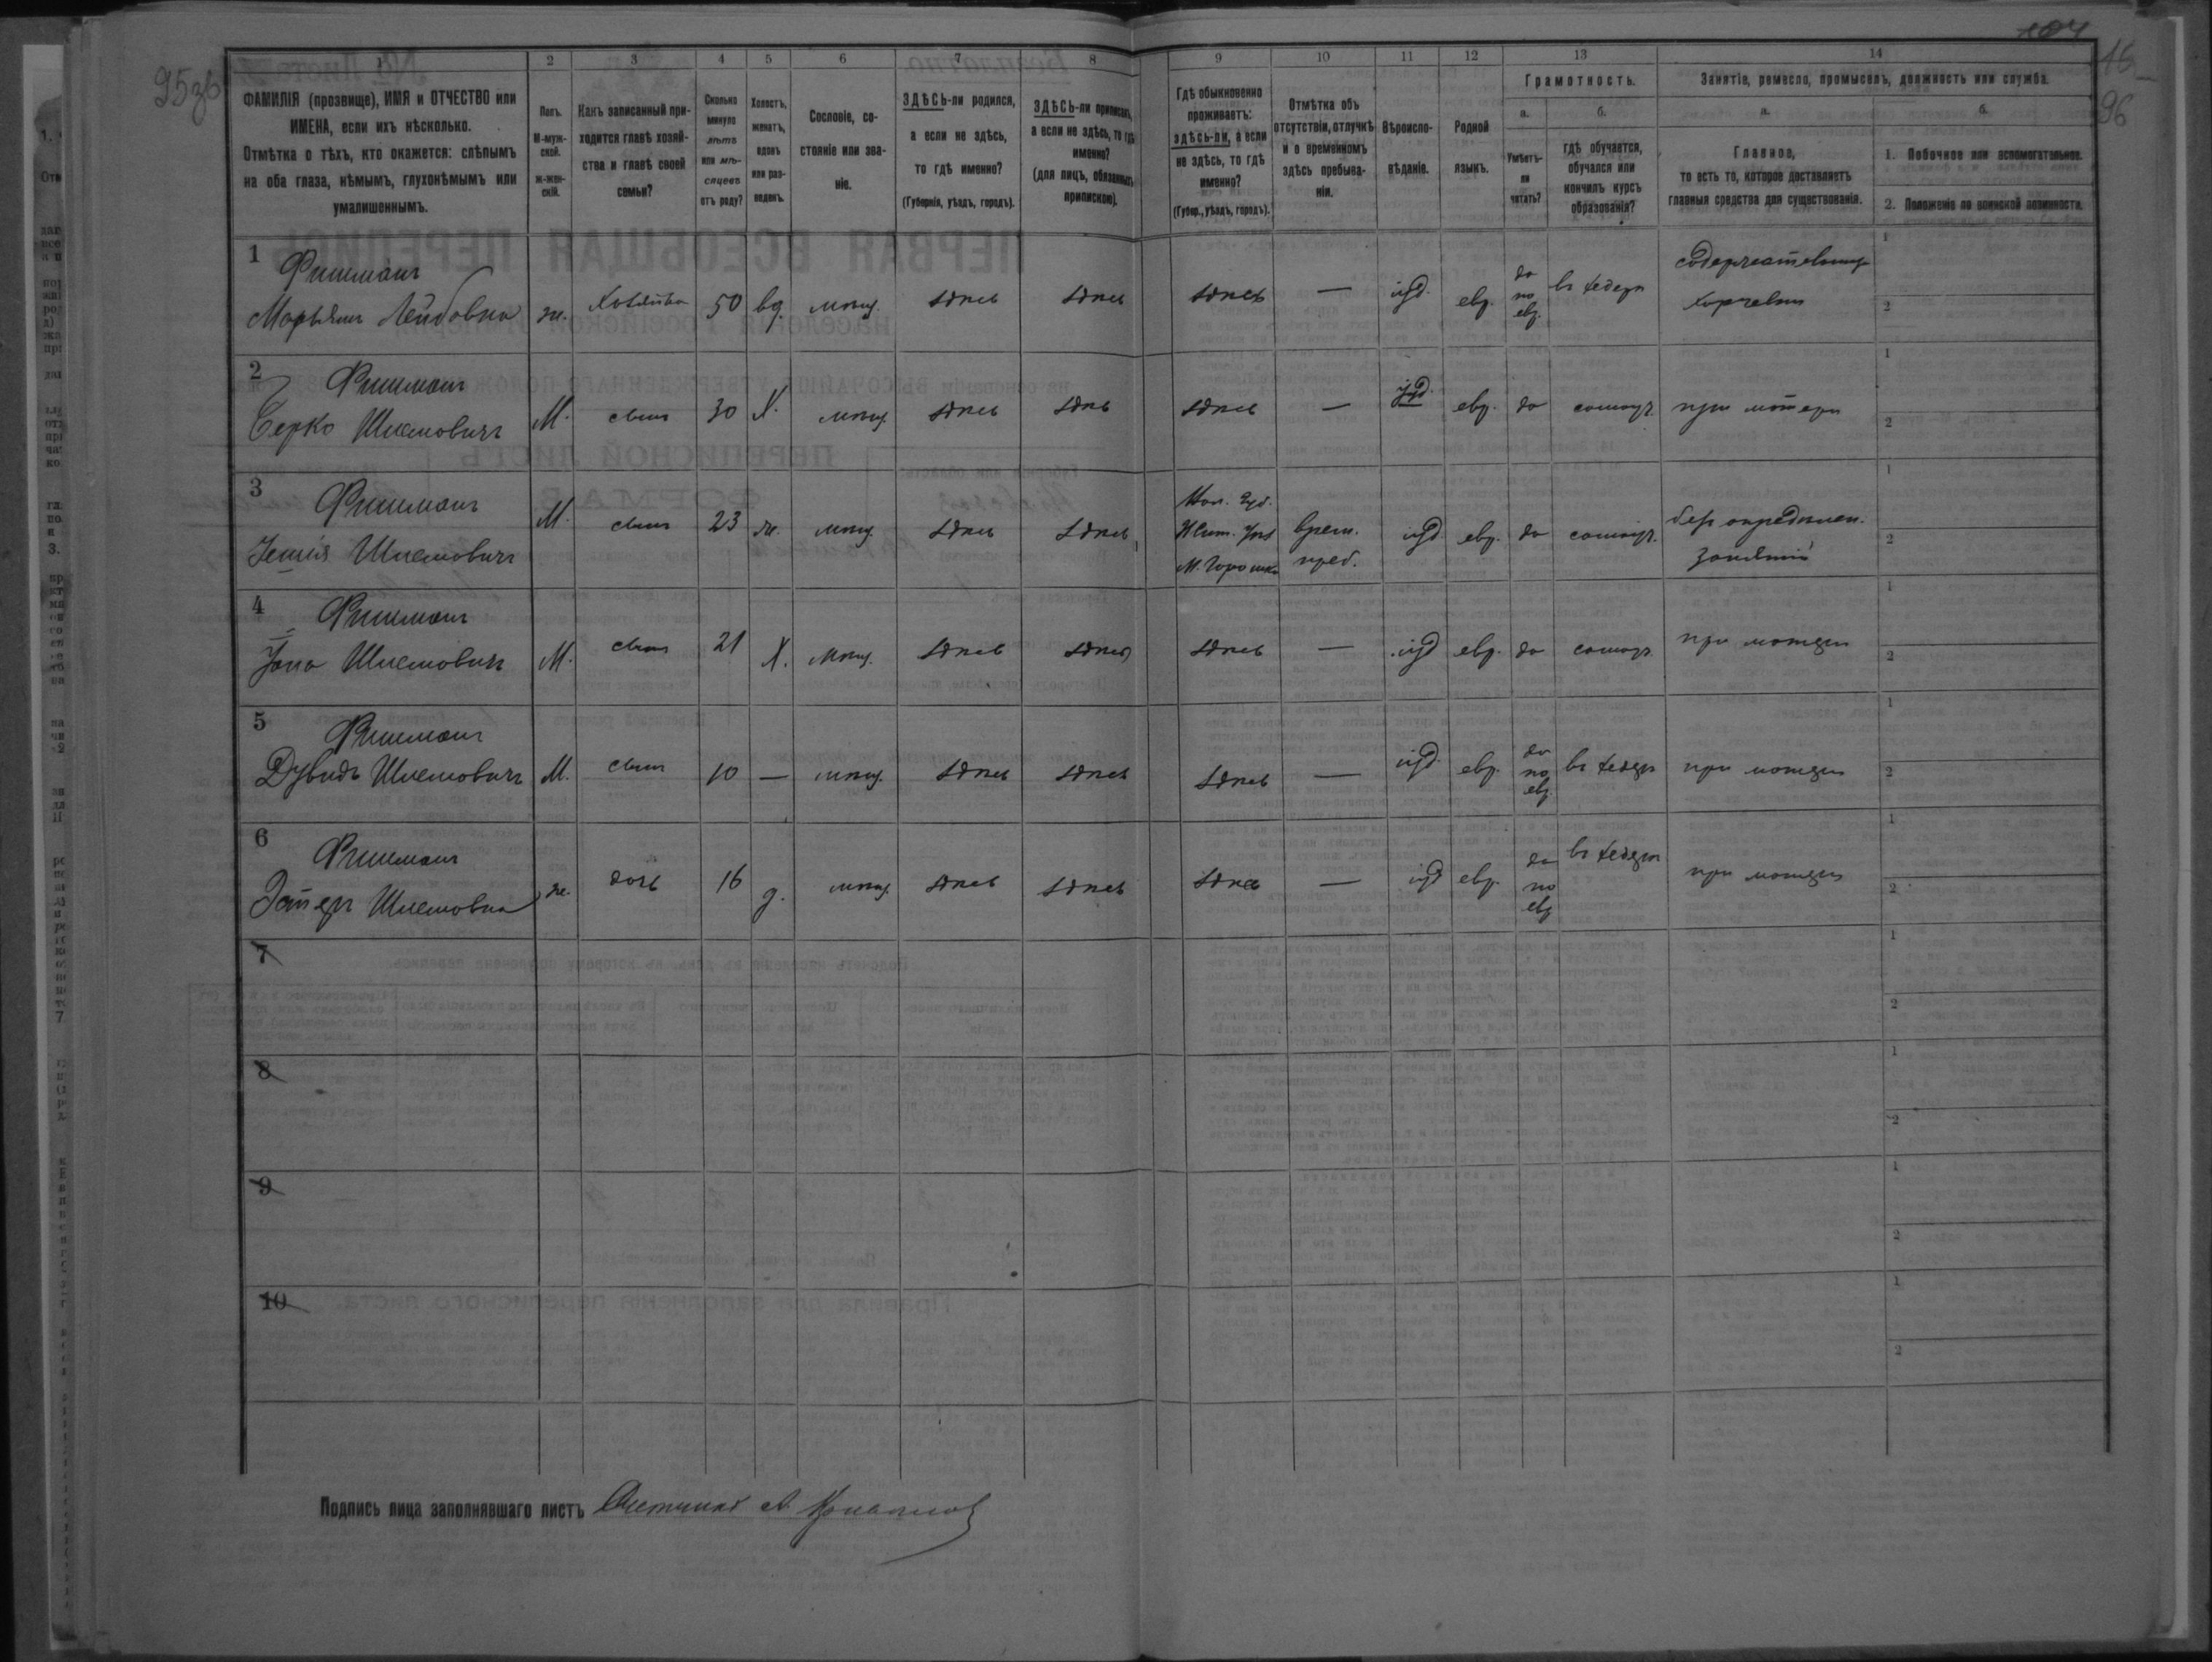 104
95зв
16
96
1 2 3 4 5 6 7 8 9 10 11 12 13 14
ФАМИЛІЯ (прозвище), ИМЯ и ОТЧЕСТВО или
ИМЕНА, если ихъ нѣсколько.
Отмѣтка о тѣхъ, кто окажется: слѣпымъ
на оба глаза, нѣмымъ, глухонѣмымъ или
умалишеннымъ.
Полъ.
М-муж-
ской.
ж-жен-
скій.
Какъ записанный при-
ходится главѣ хозяй-
ства и главѣ своей
семьи?
Сколько
минуло
лѣтъ
или мѣ-
сяцевъ
отъ роду?
Холостъ,
женатъ,
вдовъ
или раз-
веденъ.
Сословіе, со-
стояніе или зва-
ніе.
ЗДѢСЬ-ли родился,
а если не здѣсь,
то гдѣ именно?
(Губернія, уѣздъ, городъ).
ЗДѢСЬ-ли приписанъ,
а если не здѣсь, то гдѣ
именно?
(для лицъ, обязанныхъ
припискою).
Гдѣ обыкновенно
проживаетъ:
здѣсь-ли, а если
не здѣсь, то гдѣ
именно?
(Губер., уѣздъ, городъ).
Отмѣтка объ
отсутствіи, отлучкѣ
и о временномъ
здѣсь пребыва-
ніи.
Вѣроиспо-
вѣданіе.
Родной
языкъ.
Грамотность.
а.
Умѣетъ-
ли
читать?
б.
гдѣ обучается,
обучался или
кончилъ курсъ
образованія?
Занятіе, ремесло, промыселъ, должность или служба.
а.
Главное,
то есть то, которое доставляетъ
главныя средства для существованія.
б.
1. Побочное или вспомогательное.
2. Положеніе по воинской повинности.
1
Фишманъ
Марьямъ Лейбовна ж. Хозяйка 50 вд. мѣщ. здѣсь здѣсь здѣсь — іуд. евр. да по евр. въ хедерѣ содержательница
харчевни
1
2
2
Фишманъ
Берко Шлемовичъ М. сынъ 30 Х. мѣщ. здѣсь здѣсь здѣсь — іуд. евр. да самоуч. при матери
1
2
3
Фишманъ
Шлемовичъ М. сынъ 23 ж. мѣщ. здѣсь здѣсь
Вол. Губ.
Жит. Уѣз
М. Горошки
врем.
преб.
іуд евр. да самоуч.
безъ опредѣлен.
занятій
1
2
4
Фишманъ
Шлемовичъ М. сынъ 21 Х. мѣщ. здѣсь здѣсь здѣсь — іуд евр. да самоуч. при матери
1
2
5
Фишманъ
Дувидъ Шлемовичъ М. сынъ 10 — мѣщ. здѣсь здѣсь здѣсь — іуд. евр. да по евр. въ хедерѣ при матери
1
2
6
Фишманъ
Эстеръ Шлемовна ж. дочь 16 д. мѣщ. здѣсь здѣсь здѣсь — іуд евр. да по евр въ хедерѣ при матери
1
2
7
1
2
8
1
2
9
1
2
10
1
2
Подпись лица заполнявшаго листъ Счетчикъ А.